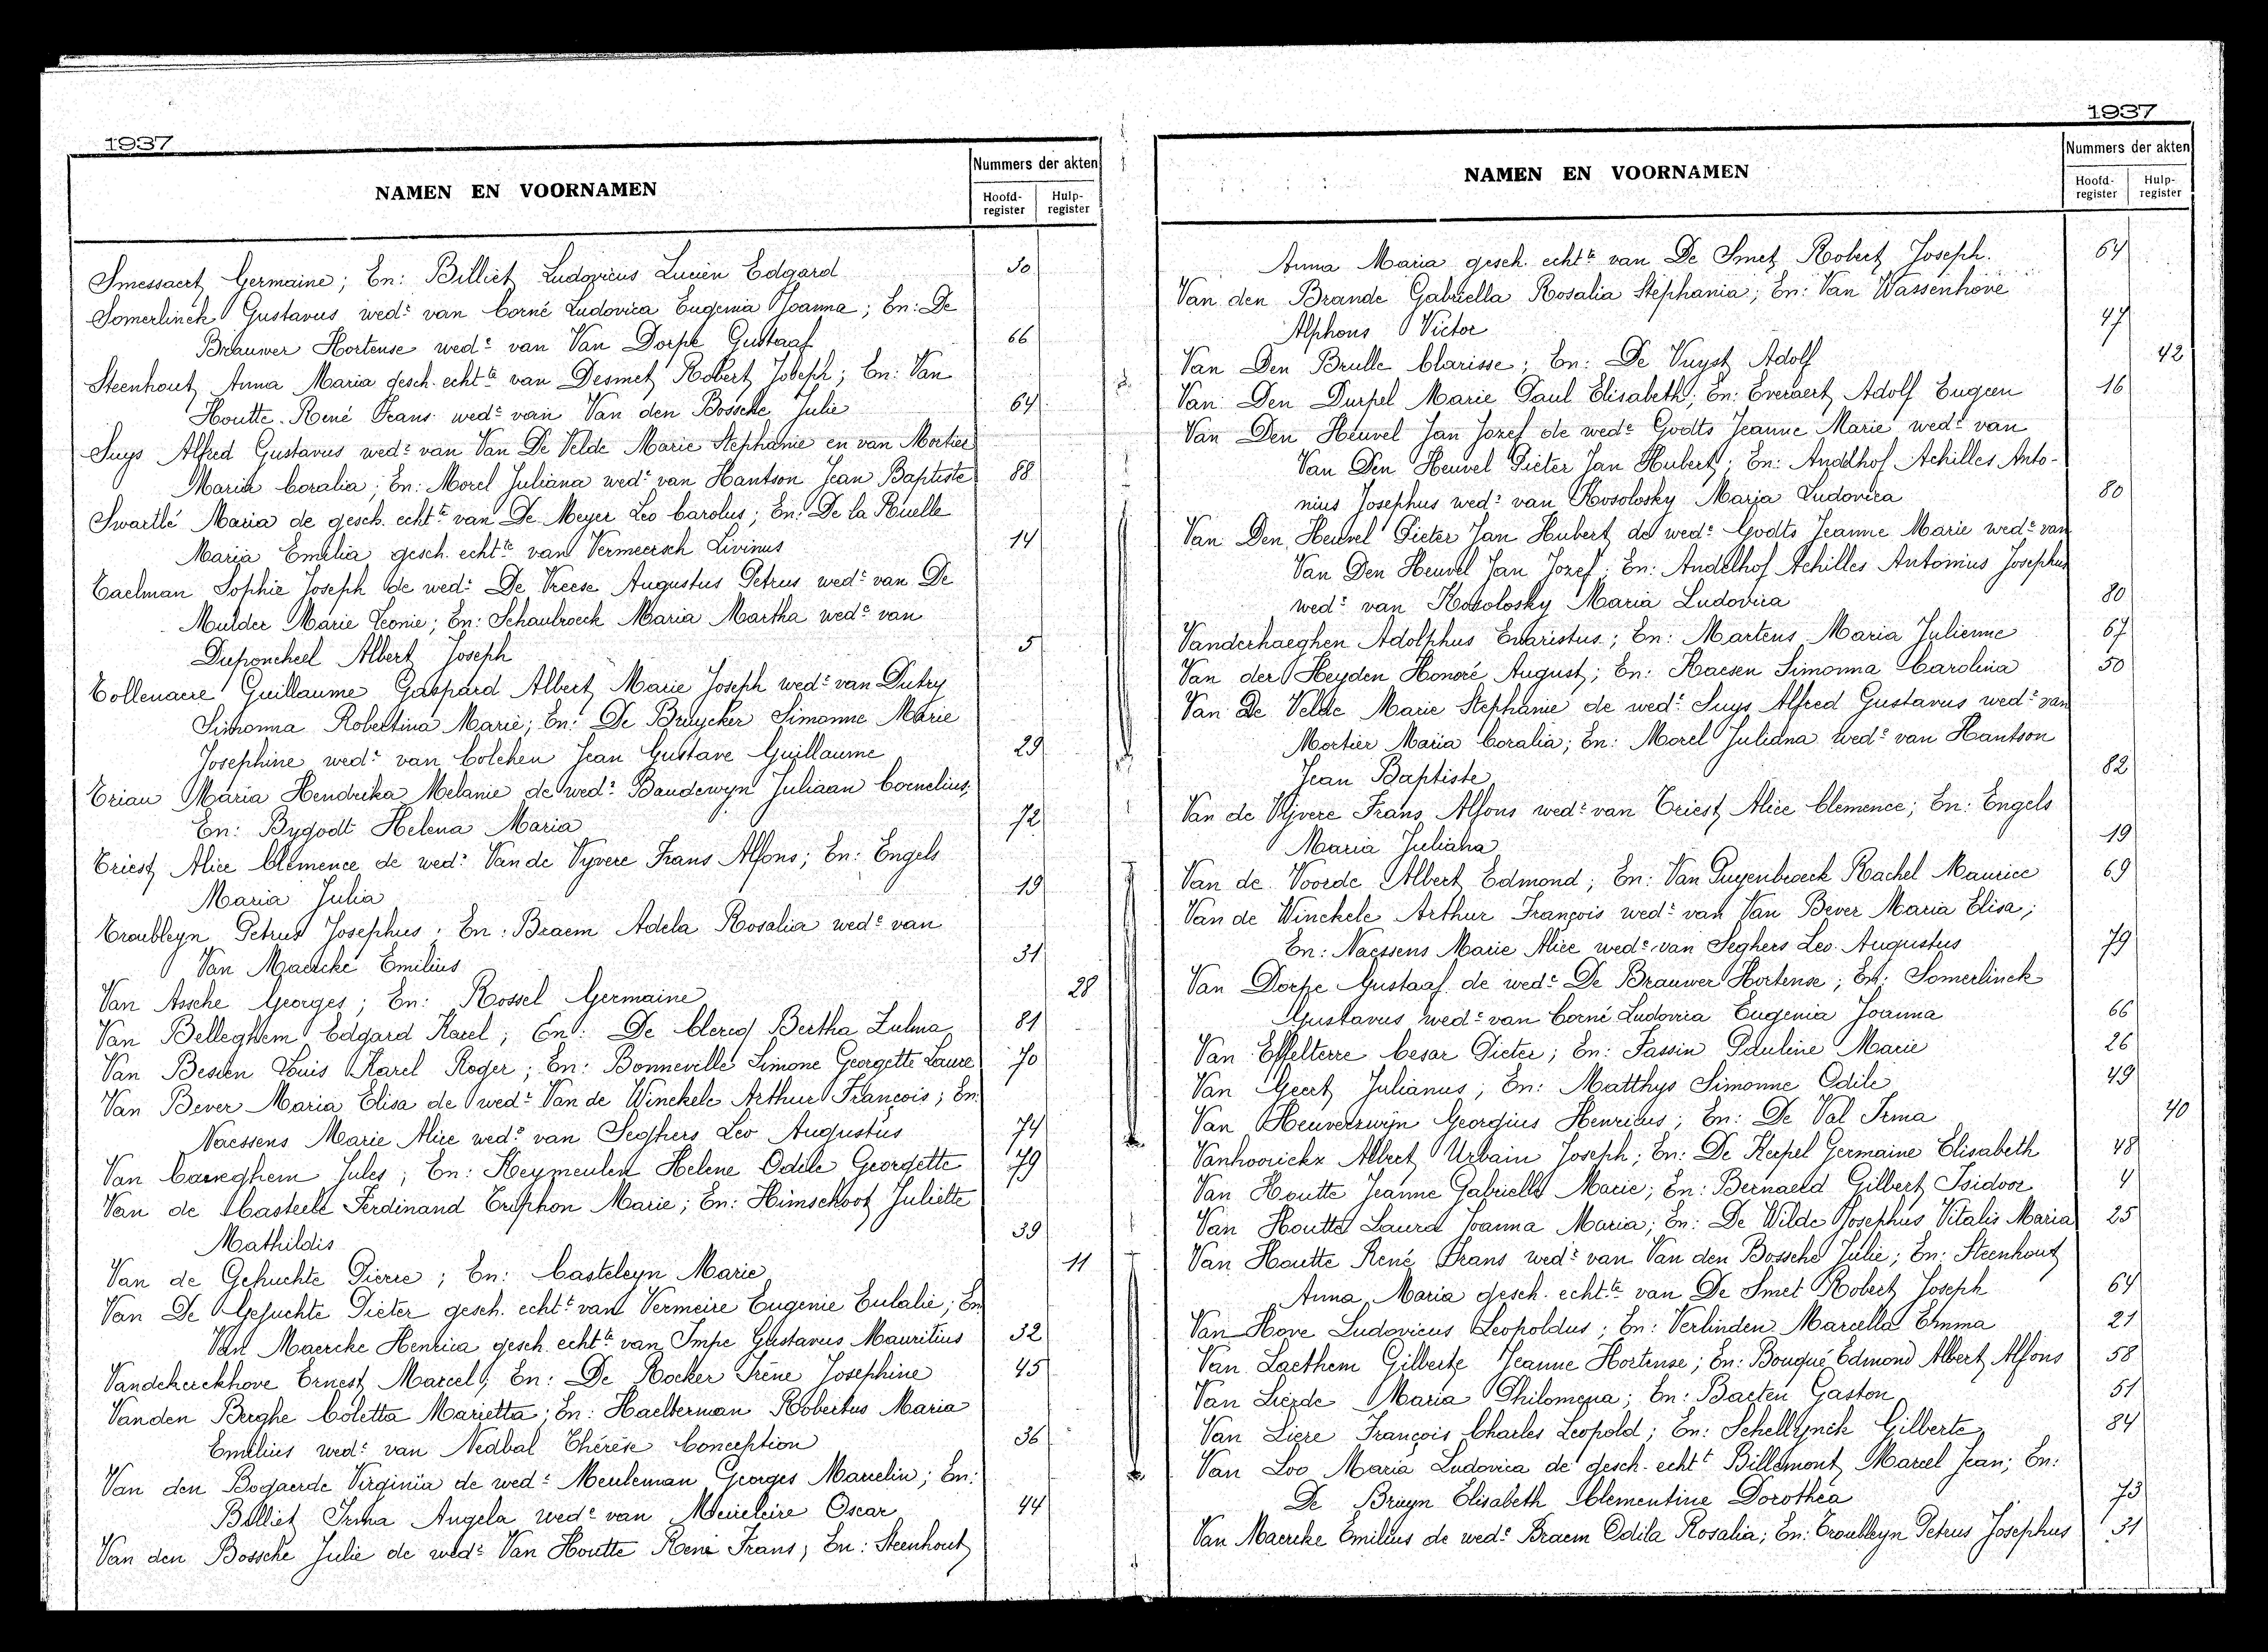 1937
NAMEN EN VOORNAMEN
Nummers der akten
Hoofd-register
Hulp-register
Smessaert Germaine; En: Billiet Ludovicus Lucien Edgard 30
Somerlinck Gustavus wedr van Corné Ludovica Eugenia Joanna; En: De
Brauwer Hortense wede van Van Dorpe Gustaaf 66
Steenhout Anna Maria gesch. echtte van Desmet Robert Joseph; En: Van
Houtte René Frans wedr van Van den Bossche Julie 64
Suys Alfred Gustavus wedr van Van De Velde Marie Stephanie en van Mortier
Maria Coralia; En: Morel Juliana wede van Hantson Jean Baptiste 88
Swartlé Maria de gesch. echtte van De Meyer Leo Carolus; En: De la Ruelle
Maria Emilia gesch. echtte van Vermeersch Livinus 14
Taelman Sophie Joseph de wedr De Vreese Augustus Petrus wedr van De
Mulder Marie Leonie; En: Schaubroeck Maria Martha wede van
Duponcheel Albert Joseph 5
Tollenaere Guillaume Gaspard Albert Marie Joseph wedr van Dutry
Simonna Robertina Marie; En: De Bruycker Simonne Marie
Josephine wede van Colchen Jean Gustave Guillaume 29
Triau Maria Hendrika Melanie de wedr Baudewyn Juliaan Cornelius;
En: Bygodt Helena Maria 72
Triest Alice Clemence de wedr Van de Vyvere Frans Alfons; En: Engels
Maria Julia 19
Troubleyn Petrus Josephus; En: Braem Adela Rosalia wede van
Van Maercke Emilius 31
Van Assche Georges; En: Rossel Germaine 28
Van Belleghem Edgard Karel; En: De Clercq Bertha Zulma 81
Van Besien Louis Karel Roger; En: Bonneville Simone Georgette Laure 70
Van Bever Maria Elisa de wedr Van de Winckele Arthur François; En:
Naessens Marie Alice wede van Seghers Leo Augustus 74
Van Caeneghem Jules; En: Keymeulen Helene Odile Georgette 79
Van de Casteele Ferdinand Tryphon Marie; En: Himschoot Juliette
Mathildis 39
Van de Gehuchte Pierre; En: Casteleyn Marie 11
Van De Gehuchte Pieter gesch. echtt van Vermeire Eugenie Eulalie; En:
Van Maercke Henrica gesch. echtte van Impe Gustavus Mauritius 32
Vandekerckhove Ernest Marcel; En: De Kocker Irène Josephine 45
Vanden Berghe Coletta Marietta; En: Haelterman Robertus Maria
Emilius wedr van Nedbal Thérèse Conception 36
Van den Bogaerde Virginia de wedr Meuleman Georges Marcelin; En:
Billiet Irma Angela wede van Meireleire Oscar 44
Van den Bossche Julie de wedr Van Houtte René Frans; En: Steenhout
1937
NAMEN EN VOORNAMEN
Nummers der akten
Hoofd-register
Hulp-register
Anna Maria gesch. echtte van De Smet Robert Joseph. 64
Van den Brande Gabriella Rosalia Stephania; En: Van Wassenhove
Alphons Victor 47
Van Den Brulle Clarisse; En: De Vuyst Adolf 42
Van Den Durpel Marie Paul Elisabeth; En: Everaert Adolf Eugeen 16
Van Den Heuvel Jan Jozef de wede Godts Jeanne Marie wede van
Van Den Heuvel Pieter Jan Hubert; En: Andelhof Achilles Anto-
nius Josephus wedr van Kosolosky Maria Ludovica 80
Van Den Heuvel Pieter Jan Hubert de wede Godts Jeanne Marie wede van
Van Den Heuvel Jan Jozef; En: Andelhof Achilles Antonius Josephus
wedr van Kosolosky Maria Ludovica 80
Vanderhaeghen Adolphus Evaristus; En: Martens Maria Julienne 67
Van der Heyden Honoré August; En: Raesen Simonna Carolina 50
Van De Velde Marie Stephanie de wedr Suys Alfred Gustavus wedr van
Mortier Maria Coralia; En: Morel Juliana wede van Hantson
Jean Baptiste 82
Van de Vyvere Frans Alfons wedr van Triest Alice Clemence; En: Engels
Maria Juliana 19
Van de Voorde Albert Edmond; En: Van Puyenbroeck Rachel Maurice 69
Van de Winckele Arthur François wedr van Van Bever Maria Elisa;
En: Naessens Marie Alice wede van Seghers Leo Augustus 79
Van Dorpe Gustaaf de wede De Brauwer Hortense; En: Somerlinck
Gustavus wedr van Corné Ludovica Eugenia Joanna 66
Van Effelterre Cesar Pieter; En: Fassin Pauline Marie 26
Van Geert Julianus; En: Matthys Simonne Odile 49
Van Heuverzwijn Georgius Henricus; En: De Val Irma 40
Vanhoorickx Albert Urbain Joseph; En: De Keepel Germaine Elisabeth 48
Van Houtte Jeanne Gabrielle Marie; En: Bernaeld Gilbert Isidoor 4
Van Houtte Laura Joanna Maria; En: De Wilde Josephus Vitalis Maria 25
Van Houtte René Frans wedr van Van den Bossche Julie; En: Steenhout
Anna Maria gesch. echtte van De Smet Robert Joseph 64
Van Hove Ludovicus Leopoldus; En: Verlinden Marcella Emma 21
Van Laethem Gilberte Jeanne Hortense; En: Bouqué Edmond Albert Alfons 58
Van Lierde Maria Philomena; En: Baeten Gaston 51
Van Liere François Charles Leopold; En: Schellynck Gilberte 84
Van Loo Maria Ludovica de gesch. echtt Billemont Marcel Jean; En:
De Bruyn Elisabeth Clementine Dorothea 73
Van Maercke Emilius de wede Braem Odila Rosalia; En: Troubleyn Petrus Josephus 31